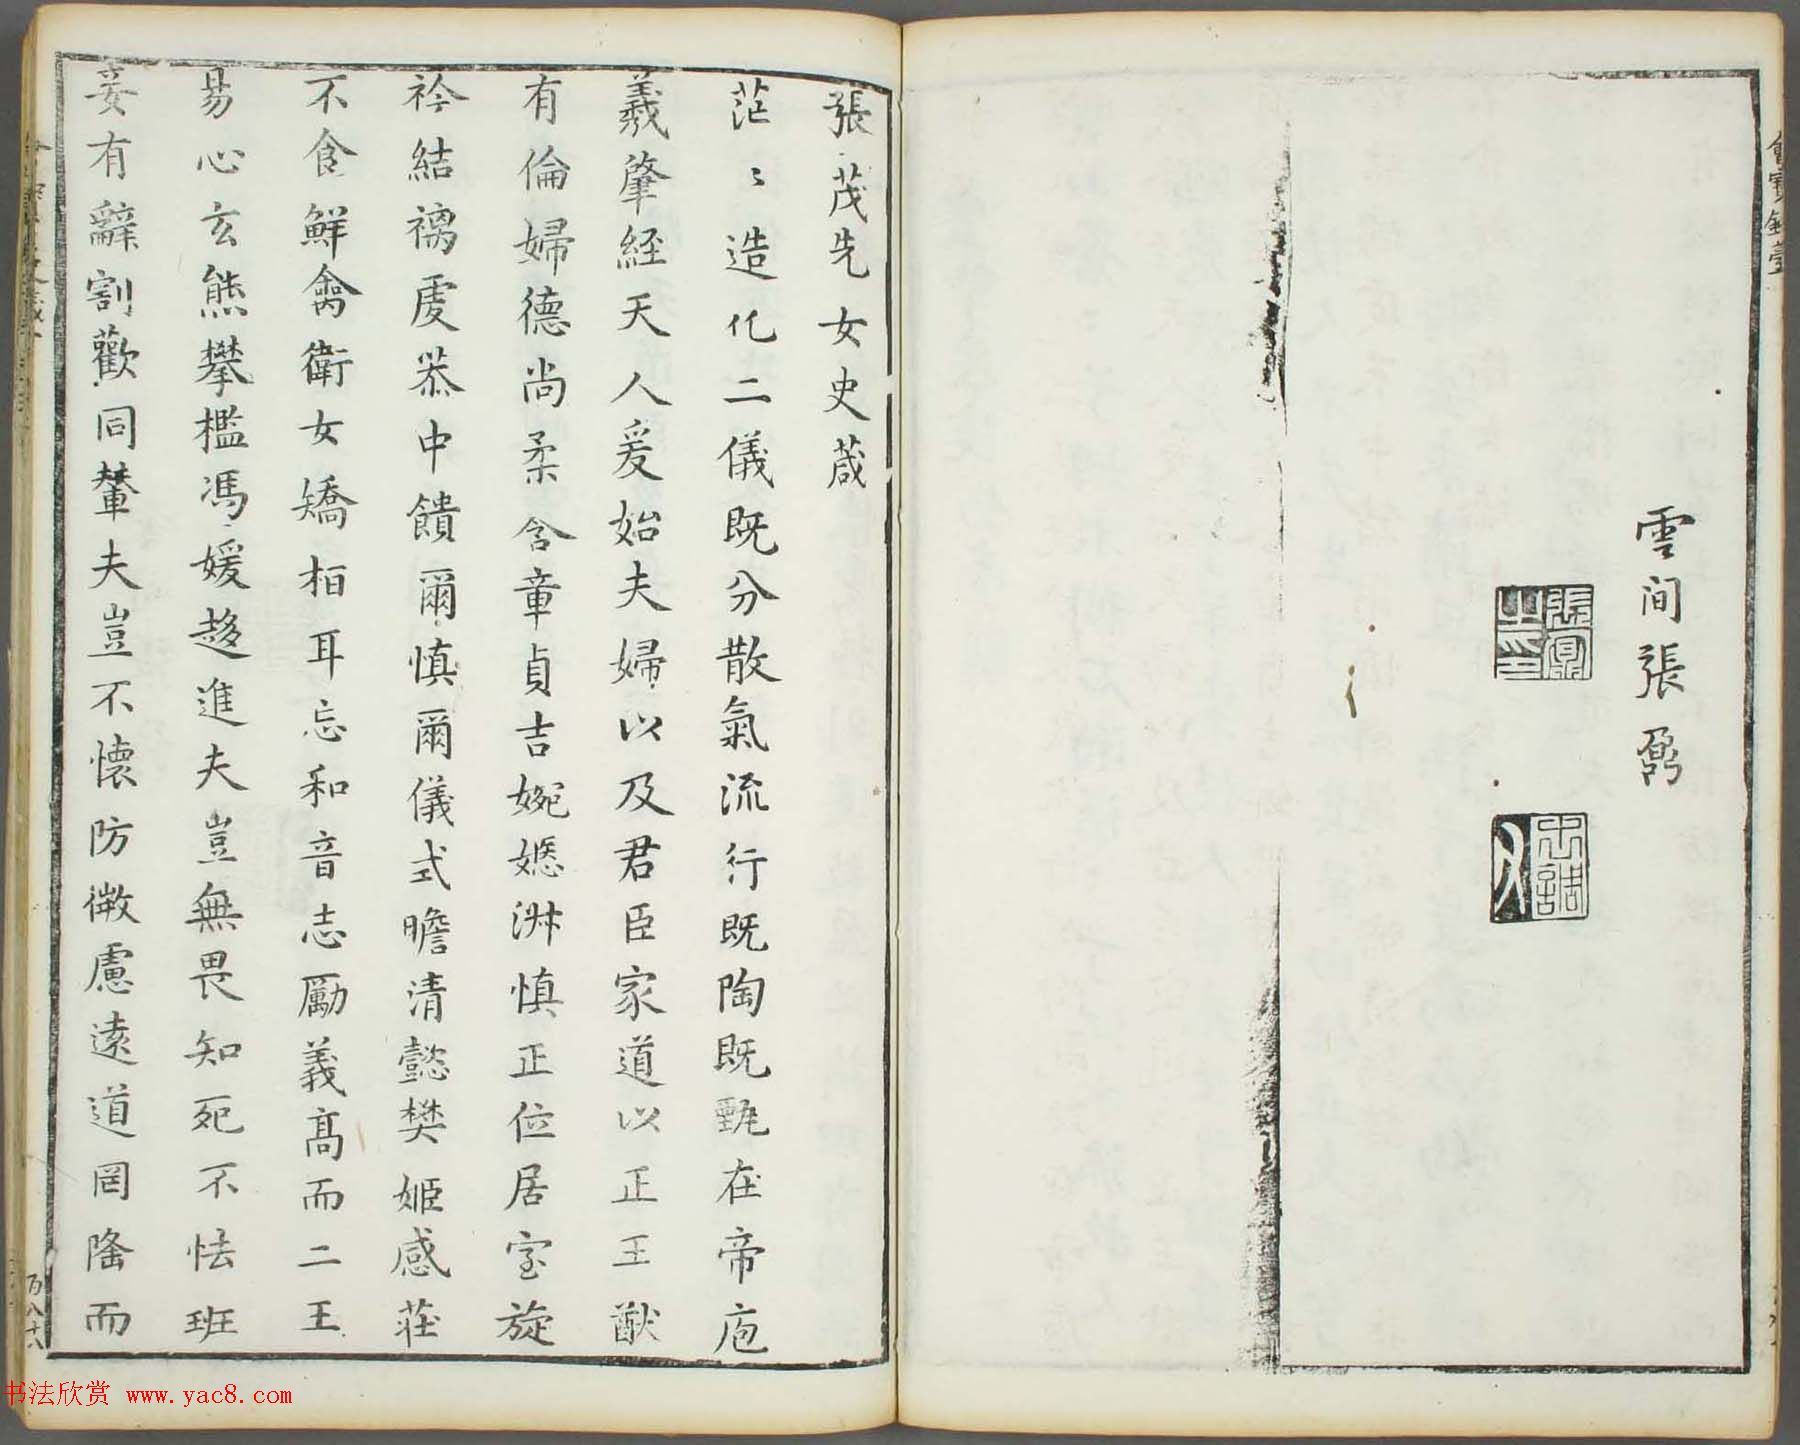 雲間張弼
張茂先女史箴
茫〻造化二儀既分散氣流行既陶既甄在帝庖
羲肇經天人爰始夫婦以及君臣家道以正王猷
有倫婦德尚柔含章貞吉婉嫕淋慎正位居室旋
衿結褵虔恭中饋爾慎爾儀式瞻清懿樊姬感莊
不食鮮禽衛女矯桓耳忘和音志勵義高而二王
易心玄熊攀檻馮媛趍進夫豈無畏知死不恡班
妾有辭割歡同輦夫豈不懷防微慮遠道罔隆而
百八十八
书法欣赏 www.yac8.com